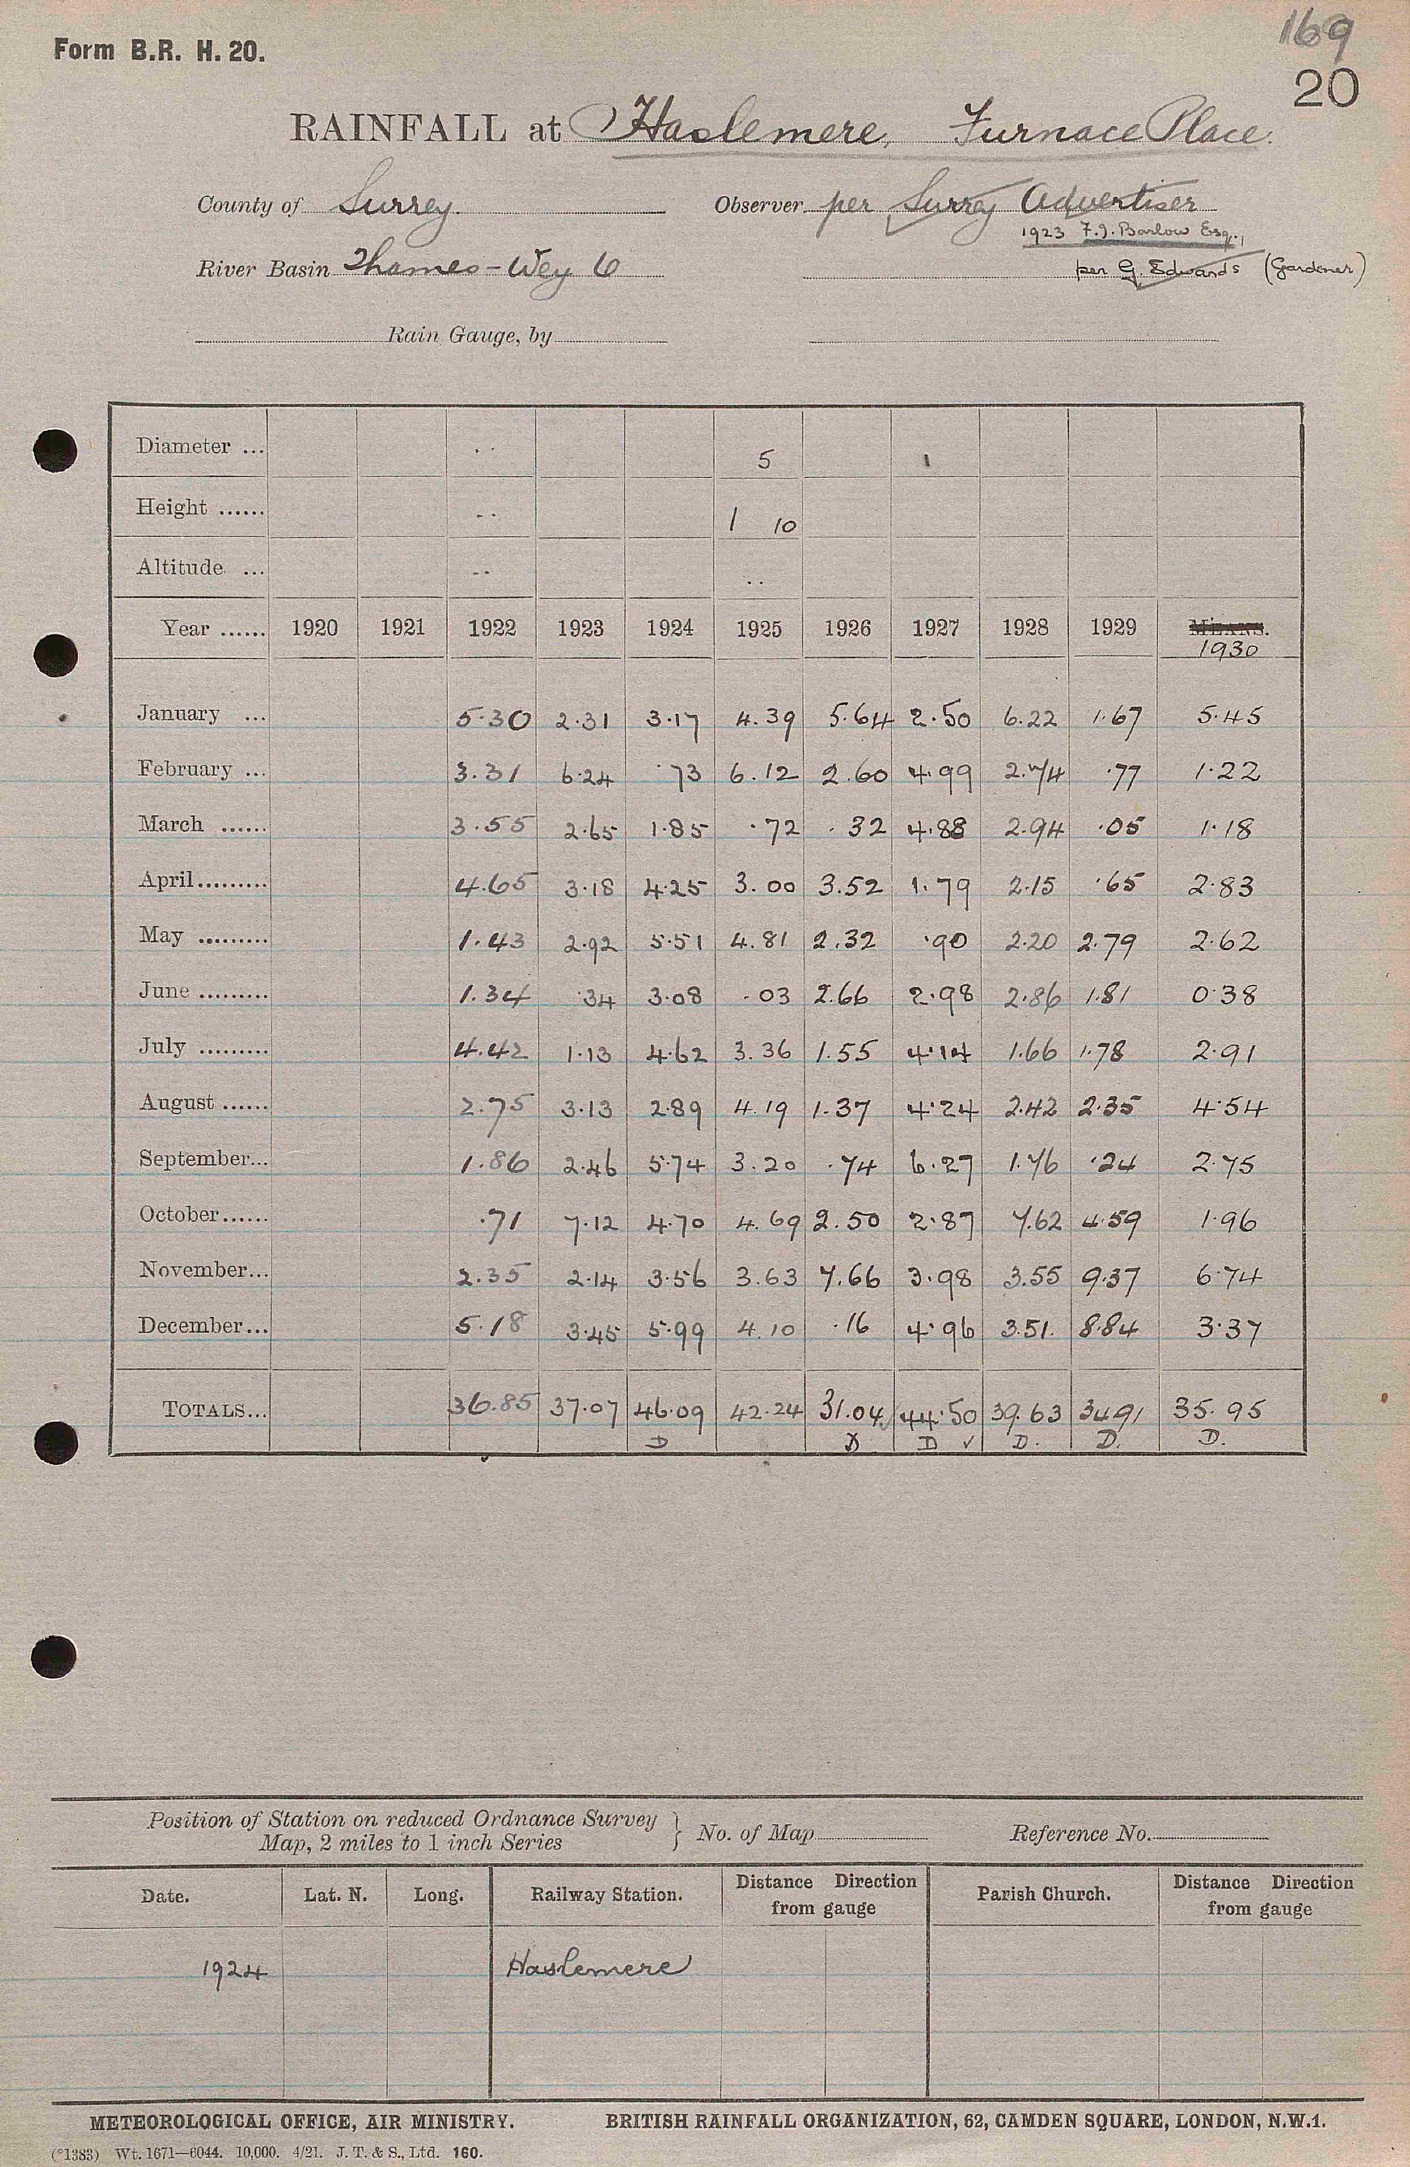 169
Form B.R. H. 20.
20
RAINFALL at Haslemere, Furnace Place.
County of Surrey.
Observer per Surrey Advertiser
1923 F.J. Barlow Esq.,
River Basin Thames - Wey 6
per G. Edwards (Gardener)
Rain Gauge, by
Diameter ... 5
Height ...... 1 10
Altitude ...
Year ...... 1920 1921 1922 1923 1924 1925 1926 1927 1928 1929 MEANS.
1930
January ... 5.30 2.31 3.17 4.39 5.64 2.50 6.22 1.67 5.45
February ... 3.31 6.24 .73 6.12 2.60 4.99 2.74 .77 1.22
March ...... 3.55 2.65 1.85 .72 .32 4.88 2.94 .05 1.18
April......... 4.65 3.18 4.25 3.00 3.52 1.79 2.15 .65 2.83
May ......... 1.43 2.92 5.51 4.81 2.32 .90 2.20 2.79 2.62
June ......... 1.34 .34 3.08 .03 2.66 2.98 2.86 1.81 0.38
July ......... 4.42 1.13 4.62 3.36 1.55 4.14 1.66 1.78 2.91
August ...... 2.75 3.13 2.89 4.19 1.37 4.24 2.42 2.35 4.54
September... 1.86 2.46 5.74 3.20 .74 6.27 1.76 .24 2.75
October...... .71 7.12 4.70 4.69 2.50 2.87 7.62 4.59 1.96
November... 2.35 2.14 3.56 3.63 7.66 3.98 3.55 9.37 6.74
December... 5.18 3.45 5.99 4.10 .16 4.96 3.51. 8.84 3.37
TOTALS... 36.85 37.07 46.09 42.24 31.04 44.50 39.63 34.91 35.95
D D D ✓ D. D. D.
Position of Station on reduced Ordnance Survey
Map, 2 miles to 1 inch Series } No. of Map Reference No.
Date. Lat. N. Long. Railway Station. Distance Direction from gauge Parish Church. Distance Direction from gauge
1924 Haslemere
METEOROLOGICAL OFFICE, AIR MINISTRY. BRITISH RAINFALL ORGANIZATION, 62, CAMDEN SQUARE, LONDON, N.W.1.
(*1383) Wt. 1671—6044. 10,000. 4/21. J. T. & S., Ltd. 160.